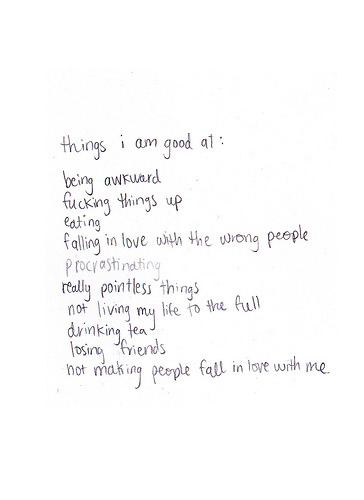 things i am good at:
being awkward
fucking things up
eating
falling in love with the wrong people
procrastinating
really pointless things
not living my life to the full
drinking tea
losing friends
not making people fall in love with me.